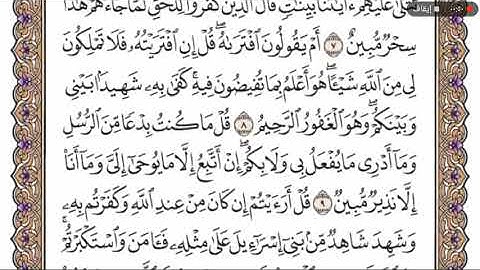 إيقاف
تُتْلَىٰ عَلَيْهِمْ ءَايَٰتُنَا بَيِّنَٰتٍ قَالَ ٱلَّذِينَ كَفَرُوا۟ لِلْحَقِّ لَمَّا جَآءَهُمْ هَٰذَا
سِحْرٌ مُّبِينٌ ٧ أَمْ يَقُولُونَ ٱفْتَرَىٰهُ ۖ قُلْ إِنِ ٱفْتَرَيْتُهُۥ فَلَا تَمْلِكُونَ
لِى مِنَ ٱللَّهِ شَيْـًٔا ۖ هُوَ أَعْلَمُ بِمَا تُفِيضُونَ فِيهِ ۖ كَفَىٰ بِهِۦ شَهِيدًۢا بَيْنِى
وَبَيْنَكُمْ ۖ وَهُوَ ٱلْغَفُورُ ٱلرَّحِيمُ ٨ قُلْ مَا كُنتُ بِدْعًا مِّنَ ٱلرُّسُلِ
وَمَآ أَدْرِى مَا يُفْعَلُ بِى وَلَا بِكُمْ ۖ إِنْ أَتَّبِعُ إِلَّا مَا يُوحَىٰٓ إِلَىَّ وَمَآ أَنَا۠
إِلَّا نَذِيرٌ مُّبِينٌ ٩ قُلْ أَرَءَيْتُمْ إِن كَانَ مِنْ عِندِ ٱللَّهِ وَكَفَرْتُم بِهِۦ
وَشَهِدَ شَاهِدٌ مِّنۢ بَنِىٓ إِسْرَٰٓءِيلَ عَلَىٰ مِثْلِهِۦ فَـَٔامَنَ وَٱسْتَكْبَرْتُمْ ۖ